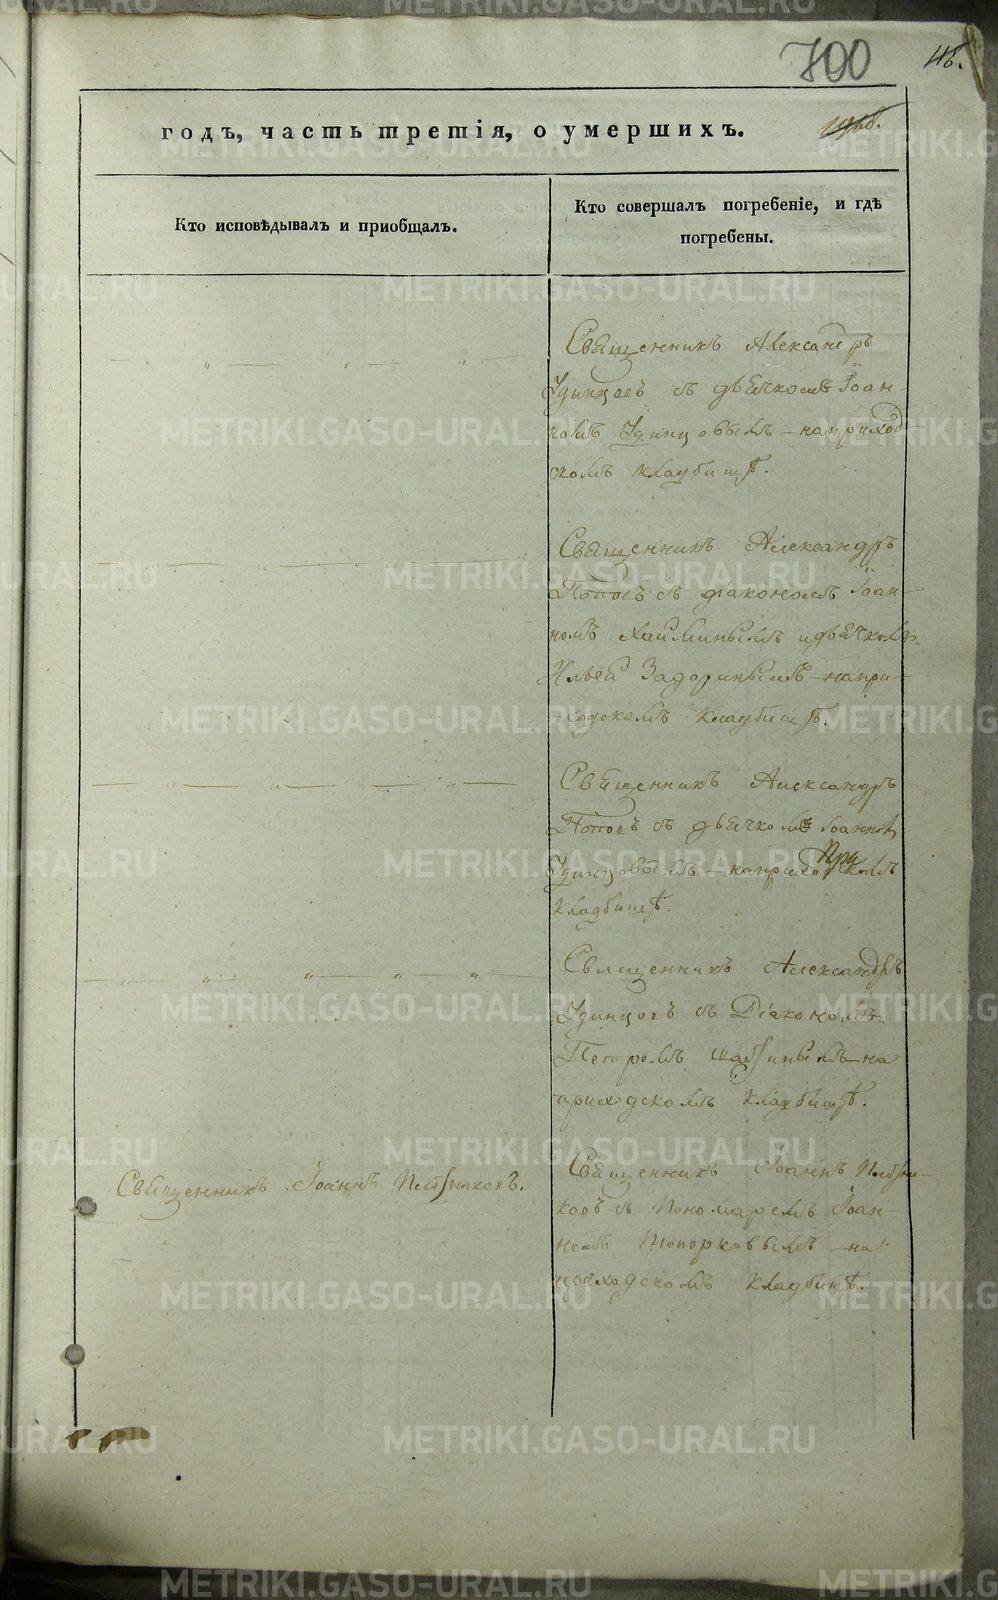 700
48.
годъ, часть третія, о умершихъ.
Кто исповѣдывалъ и приобщалъ.
Кто совершалъ погребеніе, и гдѣ
погребены.
Священникъ Александръ
Удинцовъ съ дьячкомъ Іоан-
номъ Удинцовымъ – на приход-
скомъ кладбищѣ.
Священникъ Александръ
Поповъ съ діакономъ Іоан-
номъ и дьячкомъ
Ильей Задоринымъ – на при-
ходскомъ кладбищѣ.
Священникъ Александръ
Поповъ съ дьячкомъ Іоанномъ
Удинцовымъ – на приходскомъ
кладбищѣ.
Священникъ Александръ
Удинцовъ съ Діакономъ
Петромъ на
приходскомъ кладбищѣ.
Священникъ Іоаннъ
Священникъ Іоаннъ
ковъ съ Пономаремъ Іоан-
номъ Топорковымъ – на
приходскомъ кладбищѣ.
METRIKI.GASO-URAL.RU